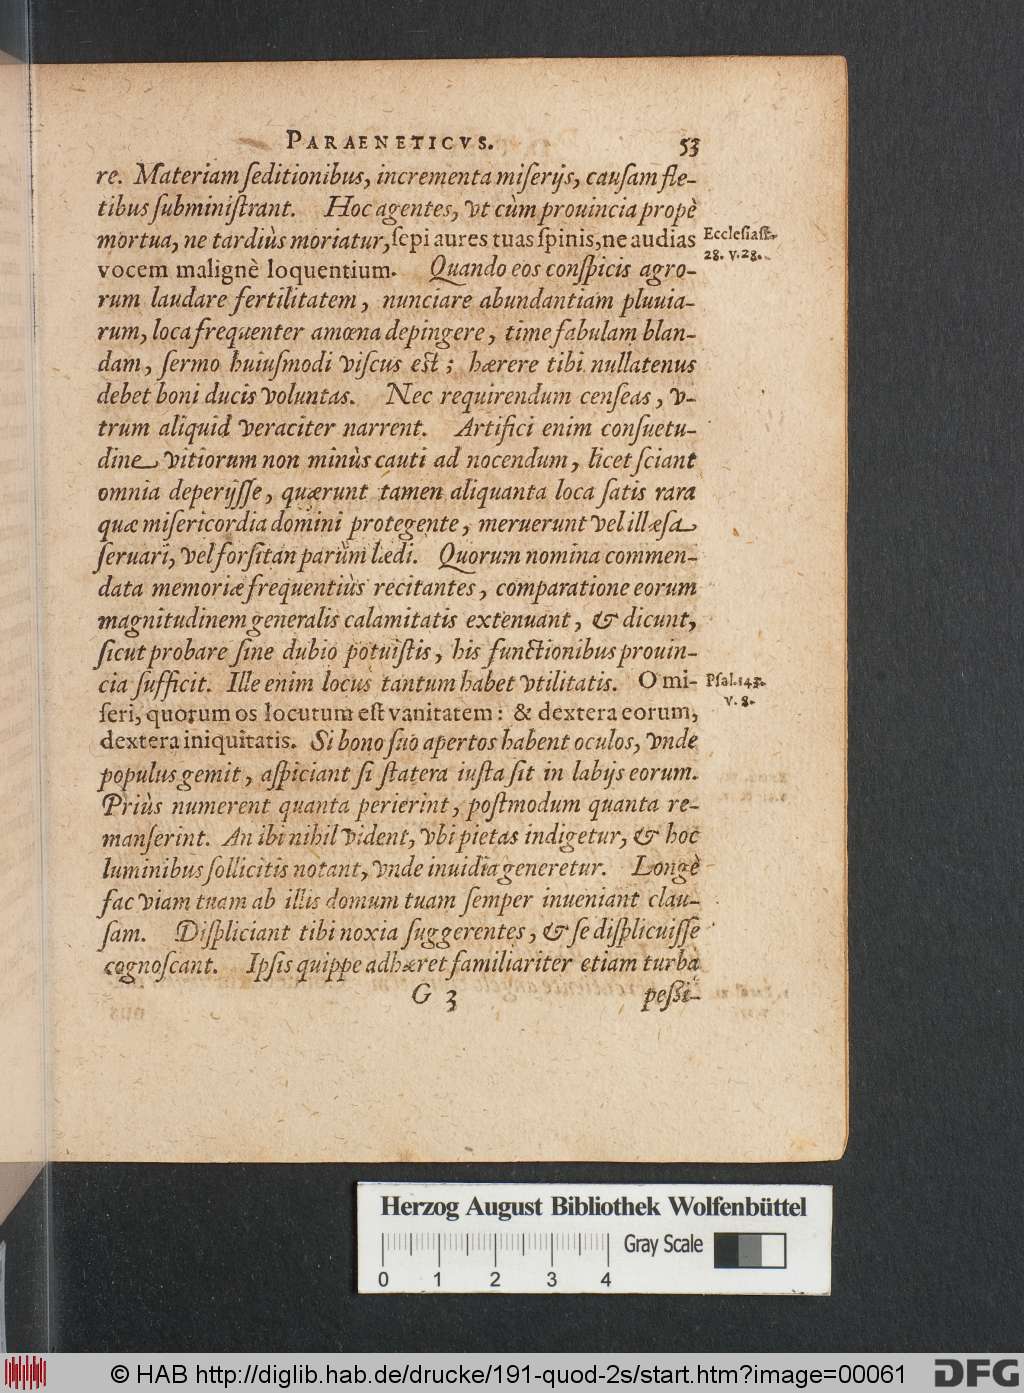 PARAENETICVS. 53
re. Materiam ſeditionibus, incrementa miſerijs, cauſam fle-
tibus ſubminiſtrant. Hoc agentes, vt cùm prouincia propè
mortua, ne tardiùs moriatur, ſepi aures tuas ſpinis, ne audias
Eccleſiaſt.
28. v. 28.
vocem malignè loquentium. Quando eos conſpicis agro-
rum laudare fertilitatem, nunciare abundantiam pluuia-
rum, loca frequenter amœna depingere, time fabulam blan-
dam, ſermo huiuſmodi viſcus eſt; hærere tibi nullatenus
debet boni ducis voluntas. Nec requirendum cenſeas, v-
trum aliquid veraciter narrent. Artifici enim conſuetu-
dine vitiorum non minùs cauti ad nocendum, licet ſciant
omnia deperijſſe, quærunt tamen aliquanta loca ſatis rara
quæ miſericordia domini protegente, meruerunt vel illæſa
ſeruari, vel forſitan parùm lædi. Quorum nomina commen-
data memoriæ frequentiùs recitantes, comparatione eorum
magnitudinem generalis calamitatis extenuant, & dicunt,
ſicut probare ſine dubio potuiſtis, his functionibus prouin-
cia ſufficit. Ille enim locus tantum habet vtilitatis. O mi-
Pſal. 143.
v. 8.
ſeri, quorum os locutum eſt vanitatem: & dextera eorum,
dextera iniquitatis. Si bono ſuo apertos habent oculos, vnde
populus gemit, aſpiciant ſi ſtatera iuſta ſit in labijs eorum.
Priùs numerent quanta perierint, poſtmodum quanta re-
manſerint. An ibi nihil vident, vbi pietas indigetur, & hoc
luminibus ſollicitis notant, vnde inuidia generetur. Longè
fac viam tuam ab illis domum tuam ſemper inueniant clau-
ſam. Diſpliciant tibi noxia ſuggerentes, & ſe diſplicuiſſe
cognoſcant. Ipſis quippe adhæret familiariter etiam turba
G 3 peßi-
Herzog August Bibliothek Wolfenbüttel
Gray Scale
0 1 2 3 4
© HAB http://diglib.hab.de/drucke/191-quod-2s/start.htm?image=00061
DFG